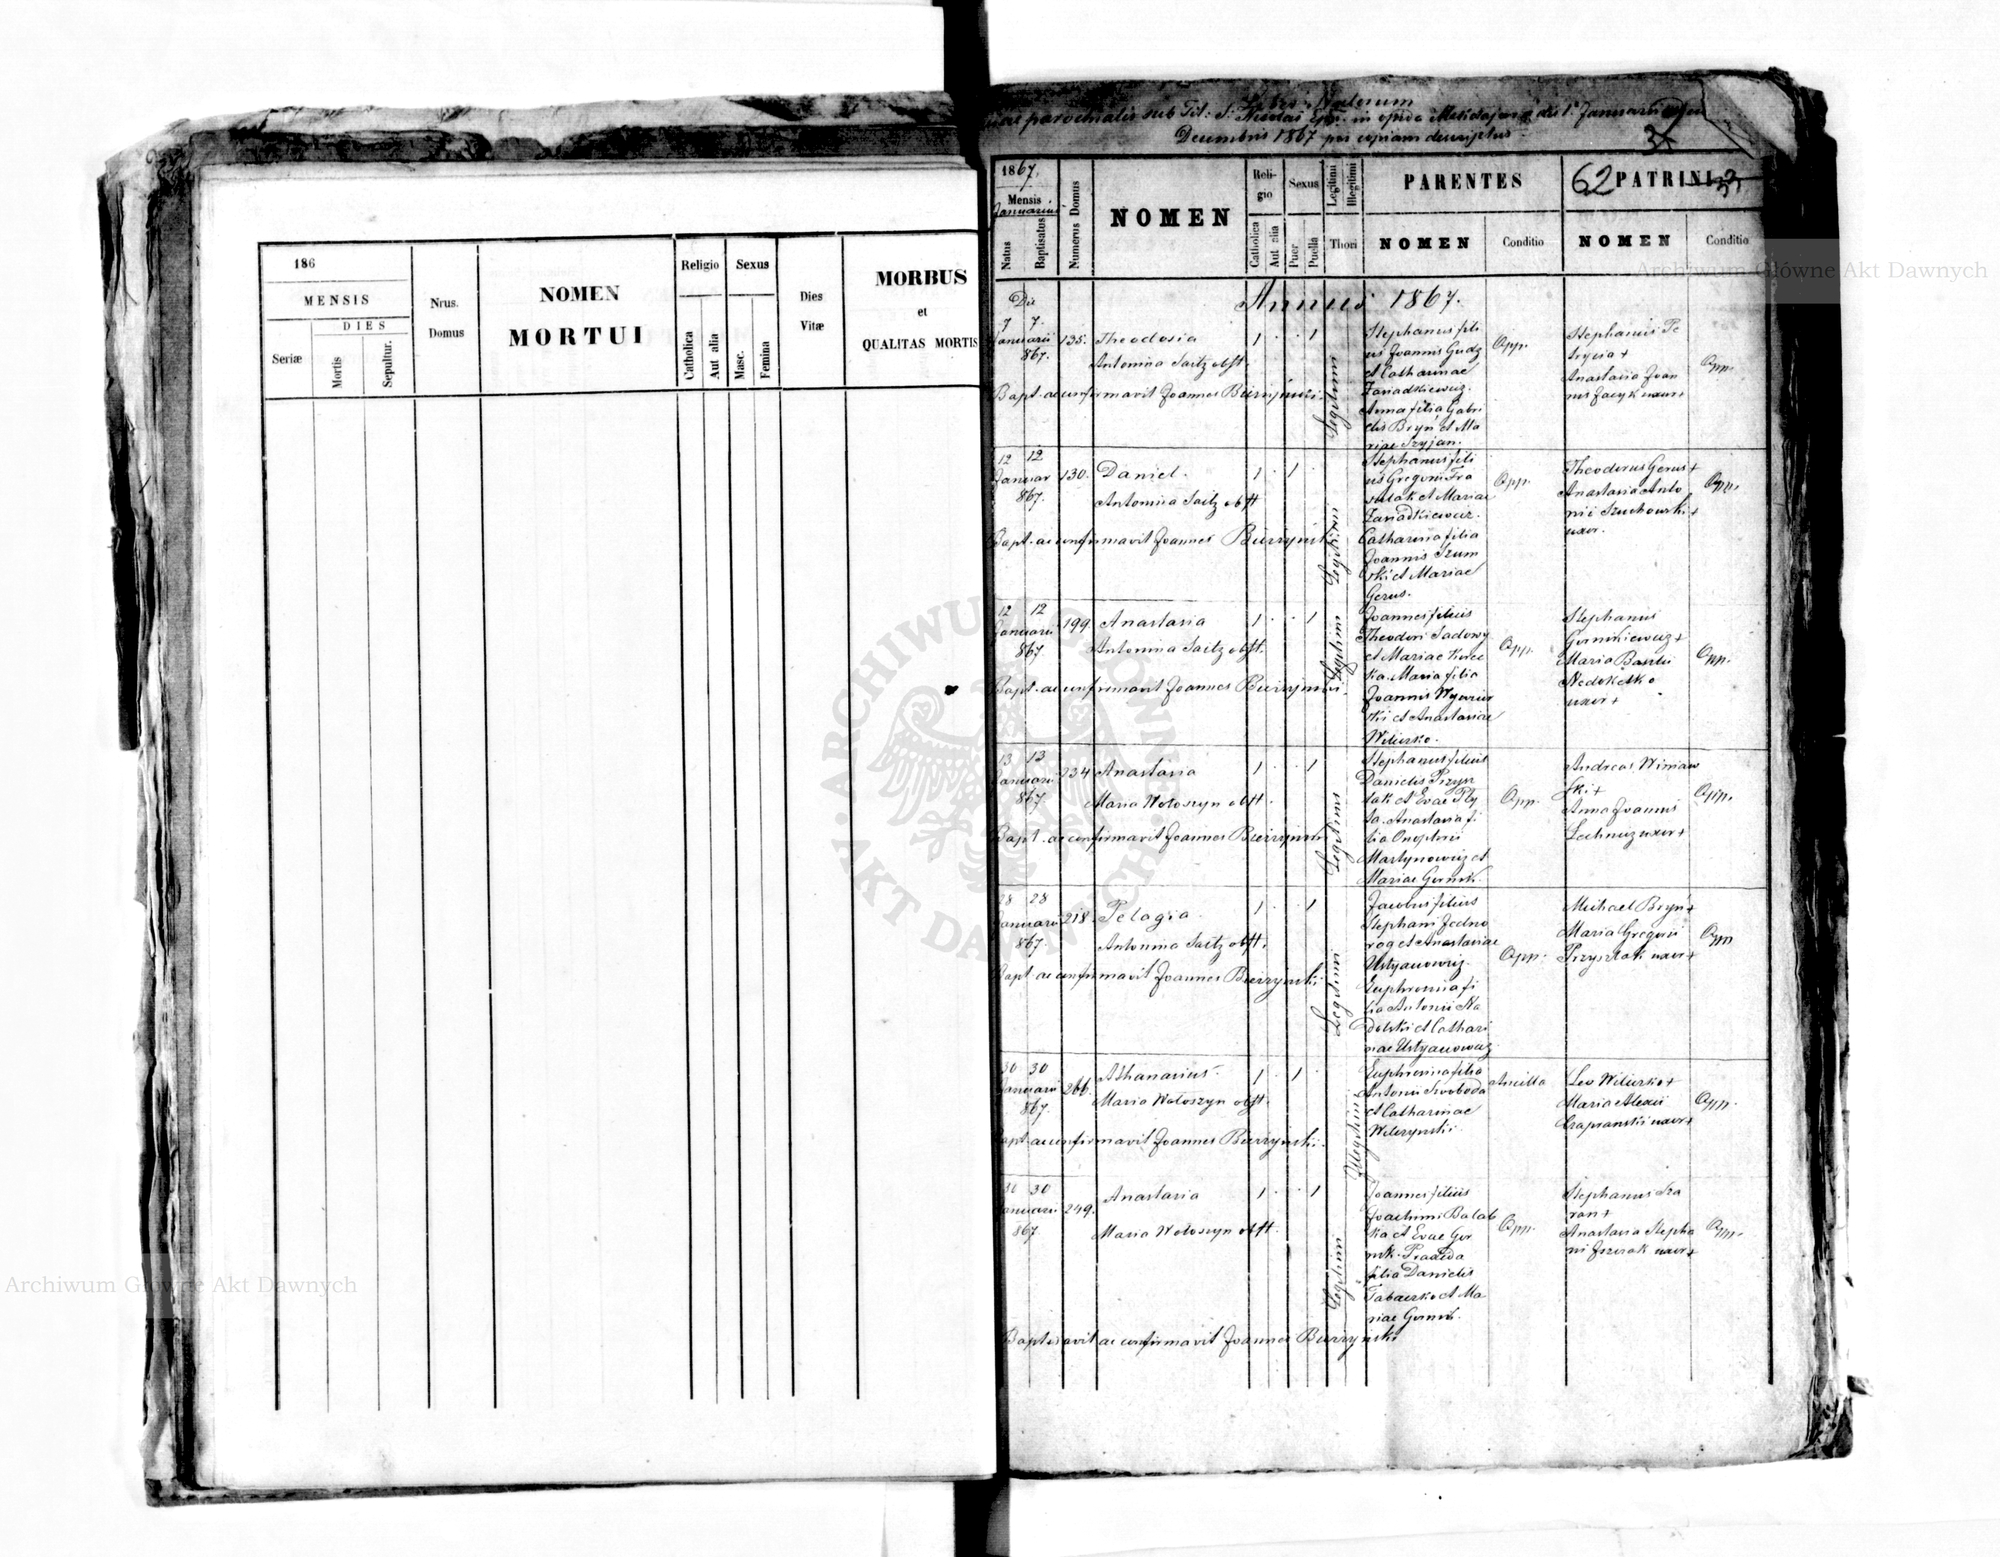 186
MENSIS
DIES
Seriæ
Mortis
Sepultur.
Nrus.
Domus
NOMEN
MORTUI
Religio
Catholica
Aut alia
Sexus
Masc.
Femina
Dies
Vitæ
MORBUS
et
QUALITAS MORTIS
Libri Natorum
parochialis sub Tit: S: Nicolai in 1a Januarii
Decembris 1867 per copiam descriptus
3
62
1867.
Mensis
Januarius
Natus
Baptisatus
Numerus Domus
NOMEN
Religio
Catholica
Aut alia
Sexus
Puer
Puella
Legitimi
Illegitimi
Thori
PARENTES
NOMEN
Conditio
PATRINI
NOMEN
Conditio
Die
Annus 1867.
7 7
Januarii
867.
135.
Theodosia
Antonina Saitz obst.
Bapt. ac confirmavit Joannes
1 1
Legitimi
Stephanus fili
us Joannis Gudz
et Catharinae
Zaviadkiewicz.
Anna filia Gabri
elis Bryń et Ma
riae Szyjan.
Opp.
Stephanus
Anastasia Joan
nis Jacyk uxor +
Opp.
12 12
Januar
867.
130.
Daniel.
Antonina Saitz obst
Bapt. ac confirmavit Joannes Burzynski
1 1
Legitimi
Stephanus fili
us Gregorii
et Mariae
Zaviadkiewicz.
Catharina filia
Joannis Szum
ski et Mariae
Gerus.
Opp.
Theodorus Gerus +
Anastasia Anto
nii Szuchowski +
uxor.
Opp.
12 12
Januarii
867.
199.
Anastasia
Antonina Saitz obst.
Bapt. ac confirmavit Joannes Burzynski.
1 1
Legitimi
Joannes filius
Theodori Sadowy
et Mariae
Maria filia
Joannis
et Anastasiae
Wiliczko.
Opp.
Stephanus
Gornikiewicz +
Maria
uxor +
Opp.
13 13
Januarii
867.
234
Anastasia
Maria Wołoszyn obst.
Bapt. ac confirmavit Joannes Burzynski
1 1
Legitimus
Stephanus filius
Danielis Przys
tak et Evae
Anastasia fi
lia Onophrii
Martynowicz et
Mariae
Opp.
Andreas
ski +
Anna Joannis
uxor +
Opp.
28 28
Januarii
867.
218.
Pelagia
Antonina Saitz obst.
Bapt. ac confirmavit Joannes Burzynski.
1 1
Legitimi
Jacobus filius
Stephani Jedno
rog et Anastasiae
Ustyanowicz.
Euphrosina fi
lia Antonii Na
dolski et Cathari
nae Ustyanowicz
Opp.
Michael Bryń +
Maria Gregorii
Przysztak uxor +
Opp
30 30
Januarii
867.
266.
Athanasius
Maria Wołoszyn obst.
Bapt. ac confirmavit Joannes Burzynski.
1 1
Illegitimi
Euphrosina filia
Antonii Swoboda
et Catharinae
Wilczynski
Ancilla
Leo Wiliczko +
Maria Alexii
uxor +
Opp.
30 30
Januarii
867.
249.
Anastasia
Maria Wołoszyn obst.
1 1
Legitimi
Joannes filius
Joachimi Balab
ka et Evae Gor
nik.
filia Danielis
Tabaczko et Ma
riae Gornik.
Opp.
Stephanus Sza
ran +
Anastasia Stepha
ni uxor +
Opp.
Baptisavit ac confirmavit Joannes Burzynski
ARCHIWUM GŁÓWNE AKT DAWNYCH
Archiwum Główne Akt Dawnych
Archiwum Główne Akt Dawnych